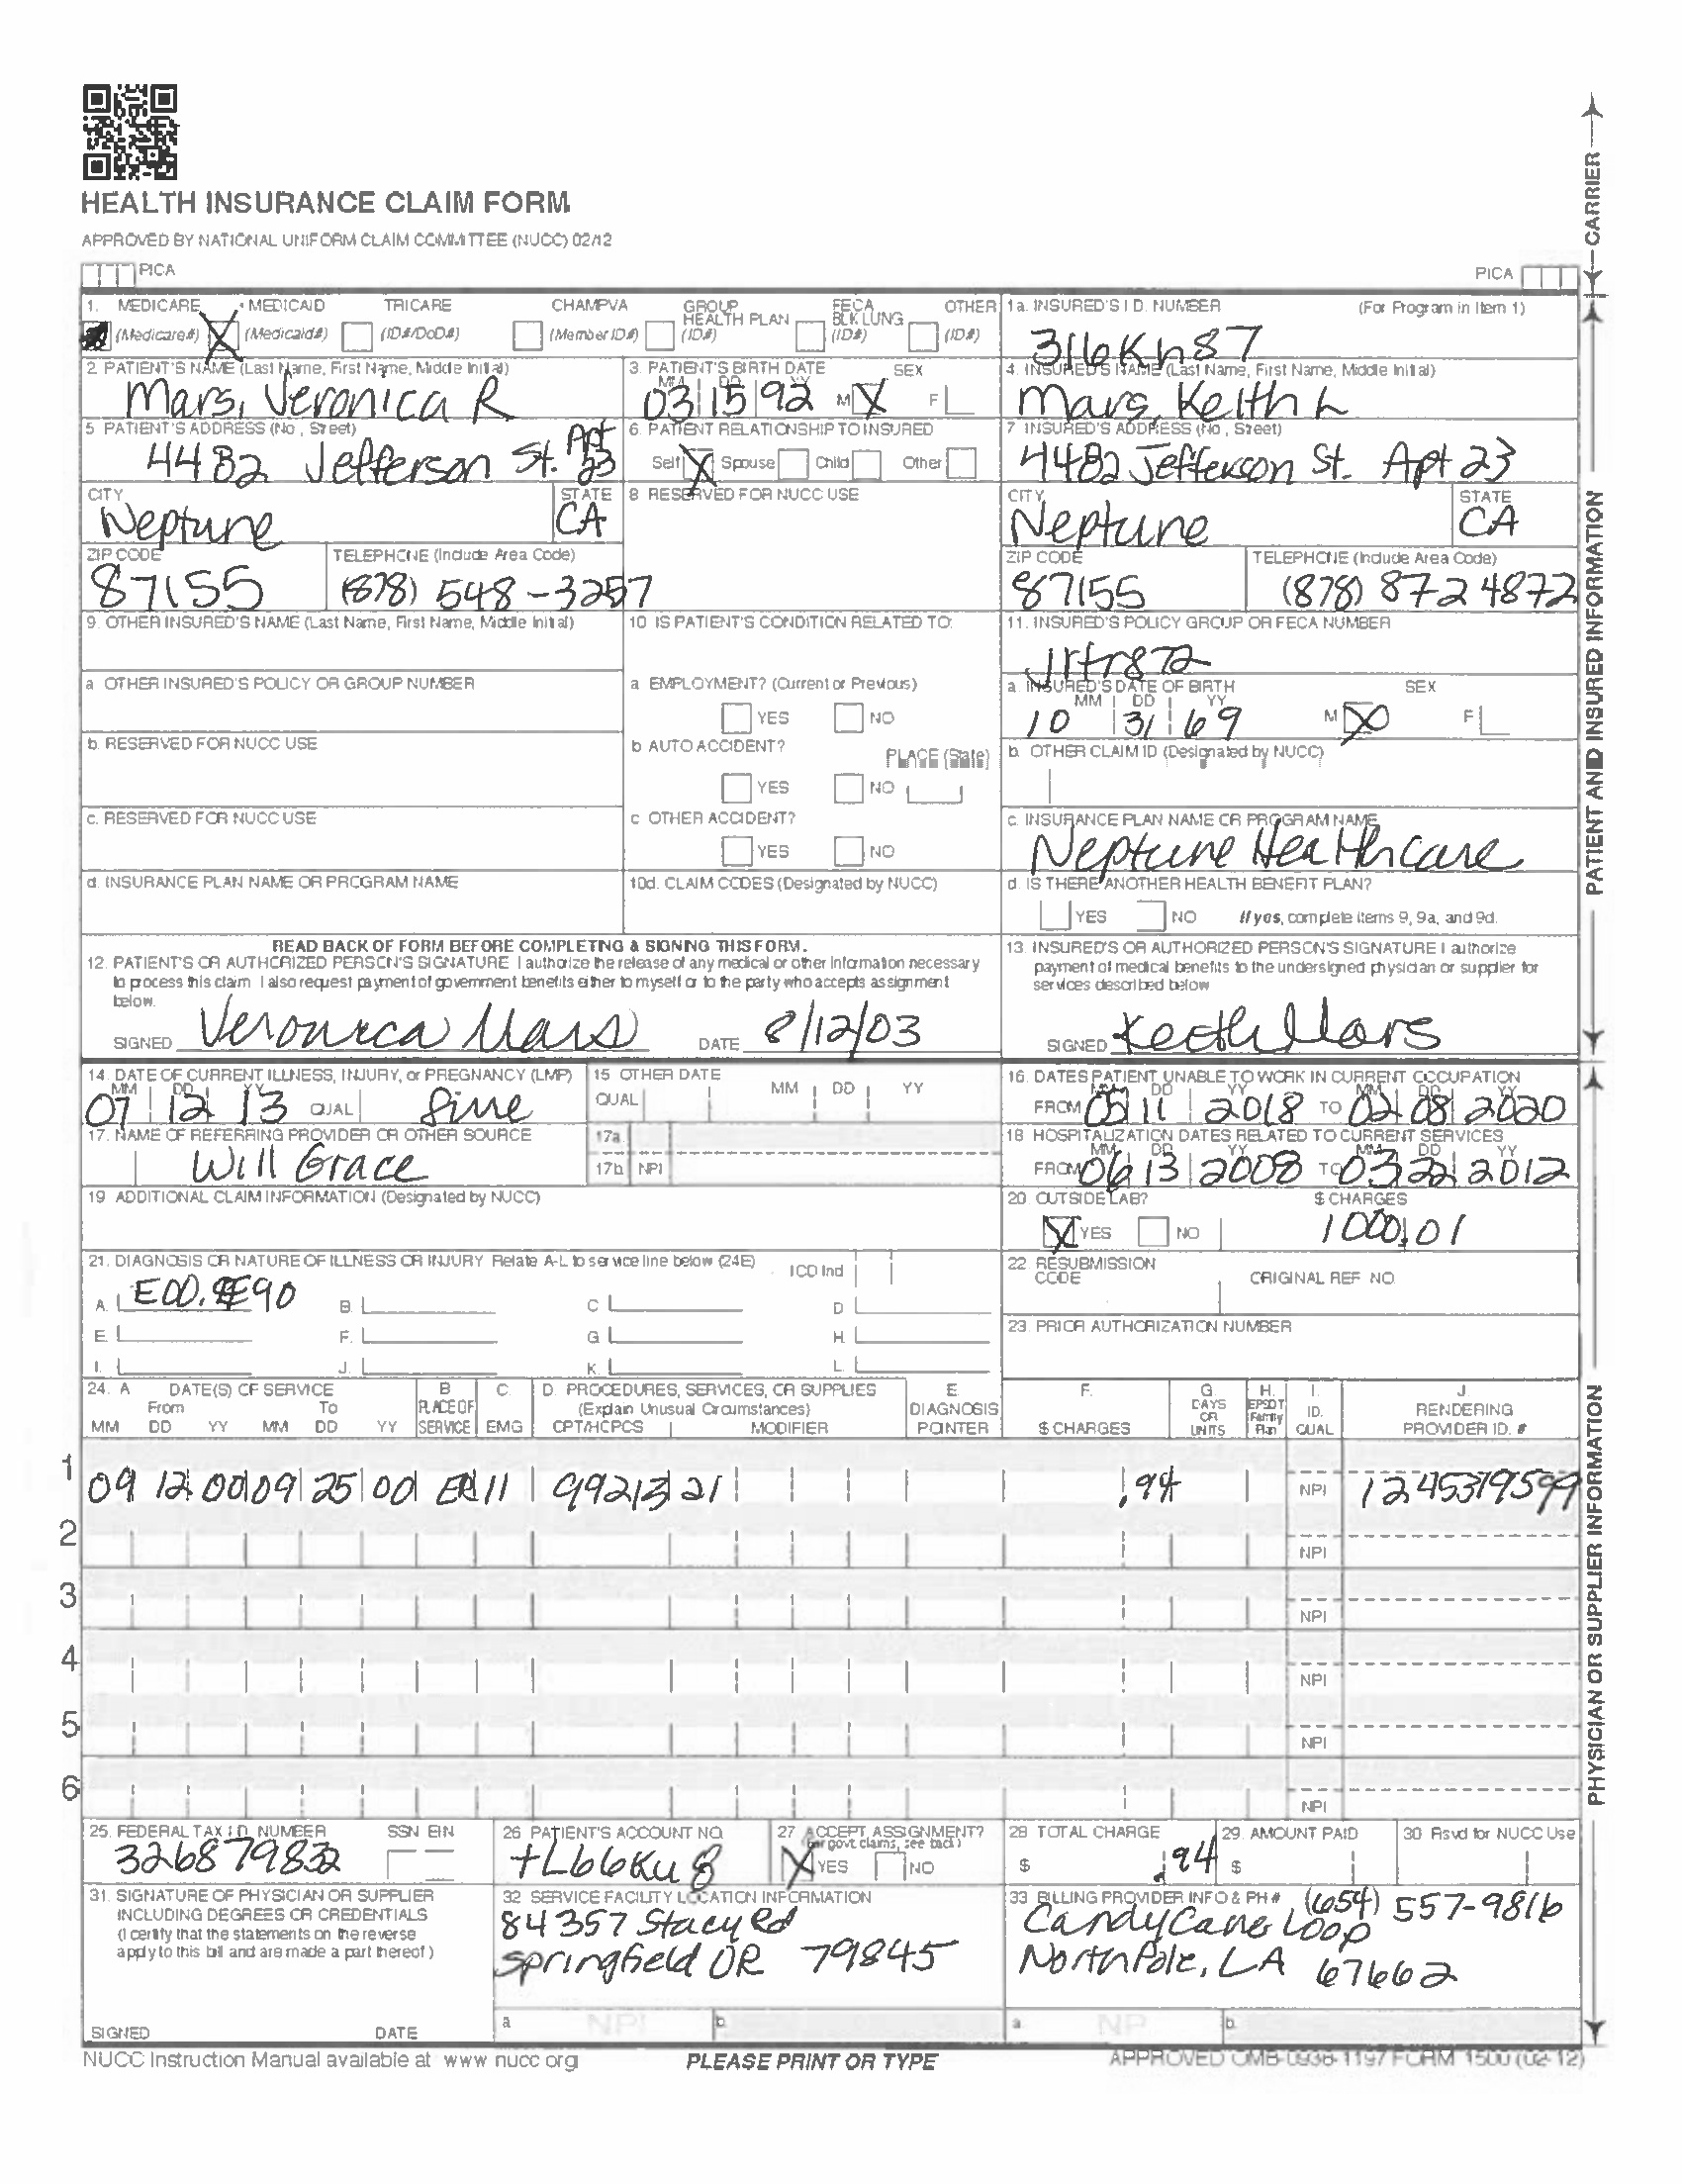 HEALTH INSURANCE CLAIM FORM
APPROVED BY NATIONAL UNIFORM CLAIM COMMITTEE (NUCC) 02/12
PICA PICA
CARRIER
1. MEDICARE MEDICAID TRICARE CHAMPVA GROUP HEALTH PLAN FECA BLK LUNG OTHER
(Medicare#) X (Medicaid#) (ID#/DoD#) (Member ID#) (ID#) (ID#) (ID#)
1a. INSURED'S I.D. NUMBER (For Program in Item 1)
316Kh87
2. PATIENT'S NAME (Last Name, First Name, Middle Initial)
Mars, Veronica R
3. PATIENT'S BIRTH DATE SEX
MM DD YY
03 15 92 M X F
4. INSURED'S NAME (Last Name, First Name, Middle Initial)
Mars, Keith L
5. PATIENT'S ADDRESS (No., Street)
4482 Jefferson St. Apt 23
6. PATIENT RELATIONSHIP TO INSURED
Self X Spouse Child Other
7. INSURED'S ADDRESS (No., Street)
4482 Jefferson St. Apt 23
CITY STATE
Neptune CA
8. RESERVED FOR NUCC USE
CITY STATE
Neptune CA
ZIP CODE TELEPHONE (Include Area Code)
87155 (878) 548-3257
ZIP CODE TELEPHONE (Include Area Code)
87155 (878) 872 4872
9. OTHER INSURED'S NAME (Last Name, First Name, Middle Initial)
10. IS PATIENT'S CONDITION RELATED TO:
11. INSURED'S POLICY GROUP OR FECA NUMBER
Jrfr872
a. OTHER INSURED'S POLICY OR GROUP NUMBER
a. EMPLOYMENT? (Current or Previous)
YES NO
a. INSURED'S DATE OF BIRTH SEX
MM DD YY
10 31 69 M X F
b. RESERVED FOR NUCC USE
b. AUTO ACCIDENT? PLACE (State)
YES NO
b. OTHER CLAIM ID (Designated by NUCC)
c. RESERVED FOR NUCC USE
c. OTHER ACCIDENT?
YES NO
c. INSURANCE PLAN NAME OR PROGRAM NAME
Neptune Healthcare
d. INSURANCE PLAN NAME OR PROGRAM NAME
10d. CLAIM CODES (Designated by NUCC)
d. IS THERE ANOTHER HEALTH BENEFIT PLAN?
YES NO If yes, complete items 9, 9a, and 9d.
PATIENT AND INSURED INFORMATION
READ BACK OF FORM BEFORE COMPLETING & SIGNING THIS FORM.
12. PATIENT'S OR AUTHORIZED PERSON'S SIGNATURE I authorize the release of any medical or other information necessary
to process this claim. I also request payment of government benefits either to myself or to the party who accepts assignment
below.
SIGNED Veronica Mars DATE 8/12/03
13. INSURED'S OR AUTHORIZED PERSON'S SIGNATURE I authorize
payment of medical benefits to the undersigned physician or supplier for
services described below.
SIGNED Keith Mars
14. DATE OF CURRENT ILLNESS, INJURY, or PREGNANCY (LMP)
MM DD YY
07 12 13 QUAL
15. OTHER DATE
QUAL MM DD YY
16. DATES PATIENT UNABLE TO WORK IN CURRENT OCCUPATION
MM DD YY MM DD YY
FROM 05 11 2018 TO 02 08 2020
17. NAME OF REFERRING PROVIDER OR OTHER SOURCE
Will Grace
17a.
17b. NPI
18. HOSPITALIZATION DATES RELATED TO CURRENT SERVICES
MM DD YY MM DD YY
FROM 06 13 2008 TO 03 22 2012
19. ADDITIONAL CLAIM INFORMATION (Designated by NUCC)
20. OUTSIDE LAB? $ CHARGES
X YES NO 1000.01
21. DIAGNOSIS OR NATURE OF ILLNESS OR INJURY Relate A-L to service line below (24E) ICD Ind.
A. B. C. D.
E. F. G. H.
I. J. K. L.
22. RESUBMISSION CODE ORIGINAL REF. NO.
23. PRIOR AUTHORIZATION NUMBER
24. A. DATE(S) OF SERVICE B. PLACE OF SERVICE C. EMG D. PROCEDURES, SERVICES, OR SUPPLIES E. DIAGNOSIS POINTER F. $ CHARGES G. DAYS OR UNITS H. EPSDT Family Plan I. ID. QUAL. J. RENDERING PROVIDER ID. #
From To (Explain Unusual Circumstances)
MM DD YY MM DD YY CPT/HCPCS MODIFIER
1 09 12 00 09 25 00 11 99213 21 .94 NPI 1245379599
2 NPI
3 NPI
4 NPI
5 NPI
6 NPI
PHYSICIAN OR SUPPLIER INFORMATION
25. FEDERAL TAX I.D. NUMBER SSN EIN
326879832
26. PATIENT'S ACCOUNT NO.
+L66Ku8
27. ACCEPT ASSIGNMENT?
(For govt. claims, see back)
X YES NO
28. TOTAL CHARGE
$ .94
29. AMOUNT PAID
$
30. Rsvd for NUCC Use
31. SIGNATURE OF PHYSICIAN OR SUPPLIER
INCLUDING DEGREES OR CREDENTIALS
(I certify that the statements on the reverse
apply to this bill and are made a part thereof.)
SIGNED DATE
32. SERVICE FACILITY LOCATION INFORMATION
84357 Stacy Rd
Springfield OR 79845
a. NPI b.
33. BILLING PROVIDER INFO & PH # (654) 557-9816
Candy Cane Loop
North Pole, LA 67662
a. NPI b.
NUCC Instruction Manual available at: www.nucc.org
PLEASE PRINT OR TYPE
APPROVED OMB-0938-1197 FORM 1500 (02-12)